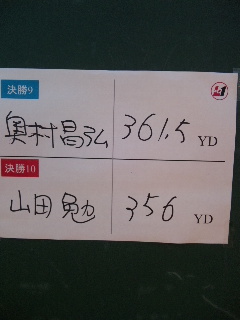 決勝9
奥村昌弘 361.5 YD
決勝10
山田勉 356 YD